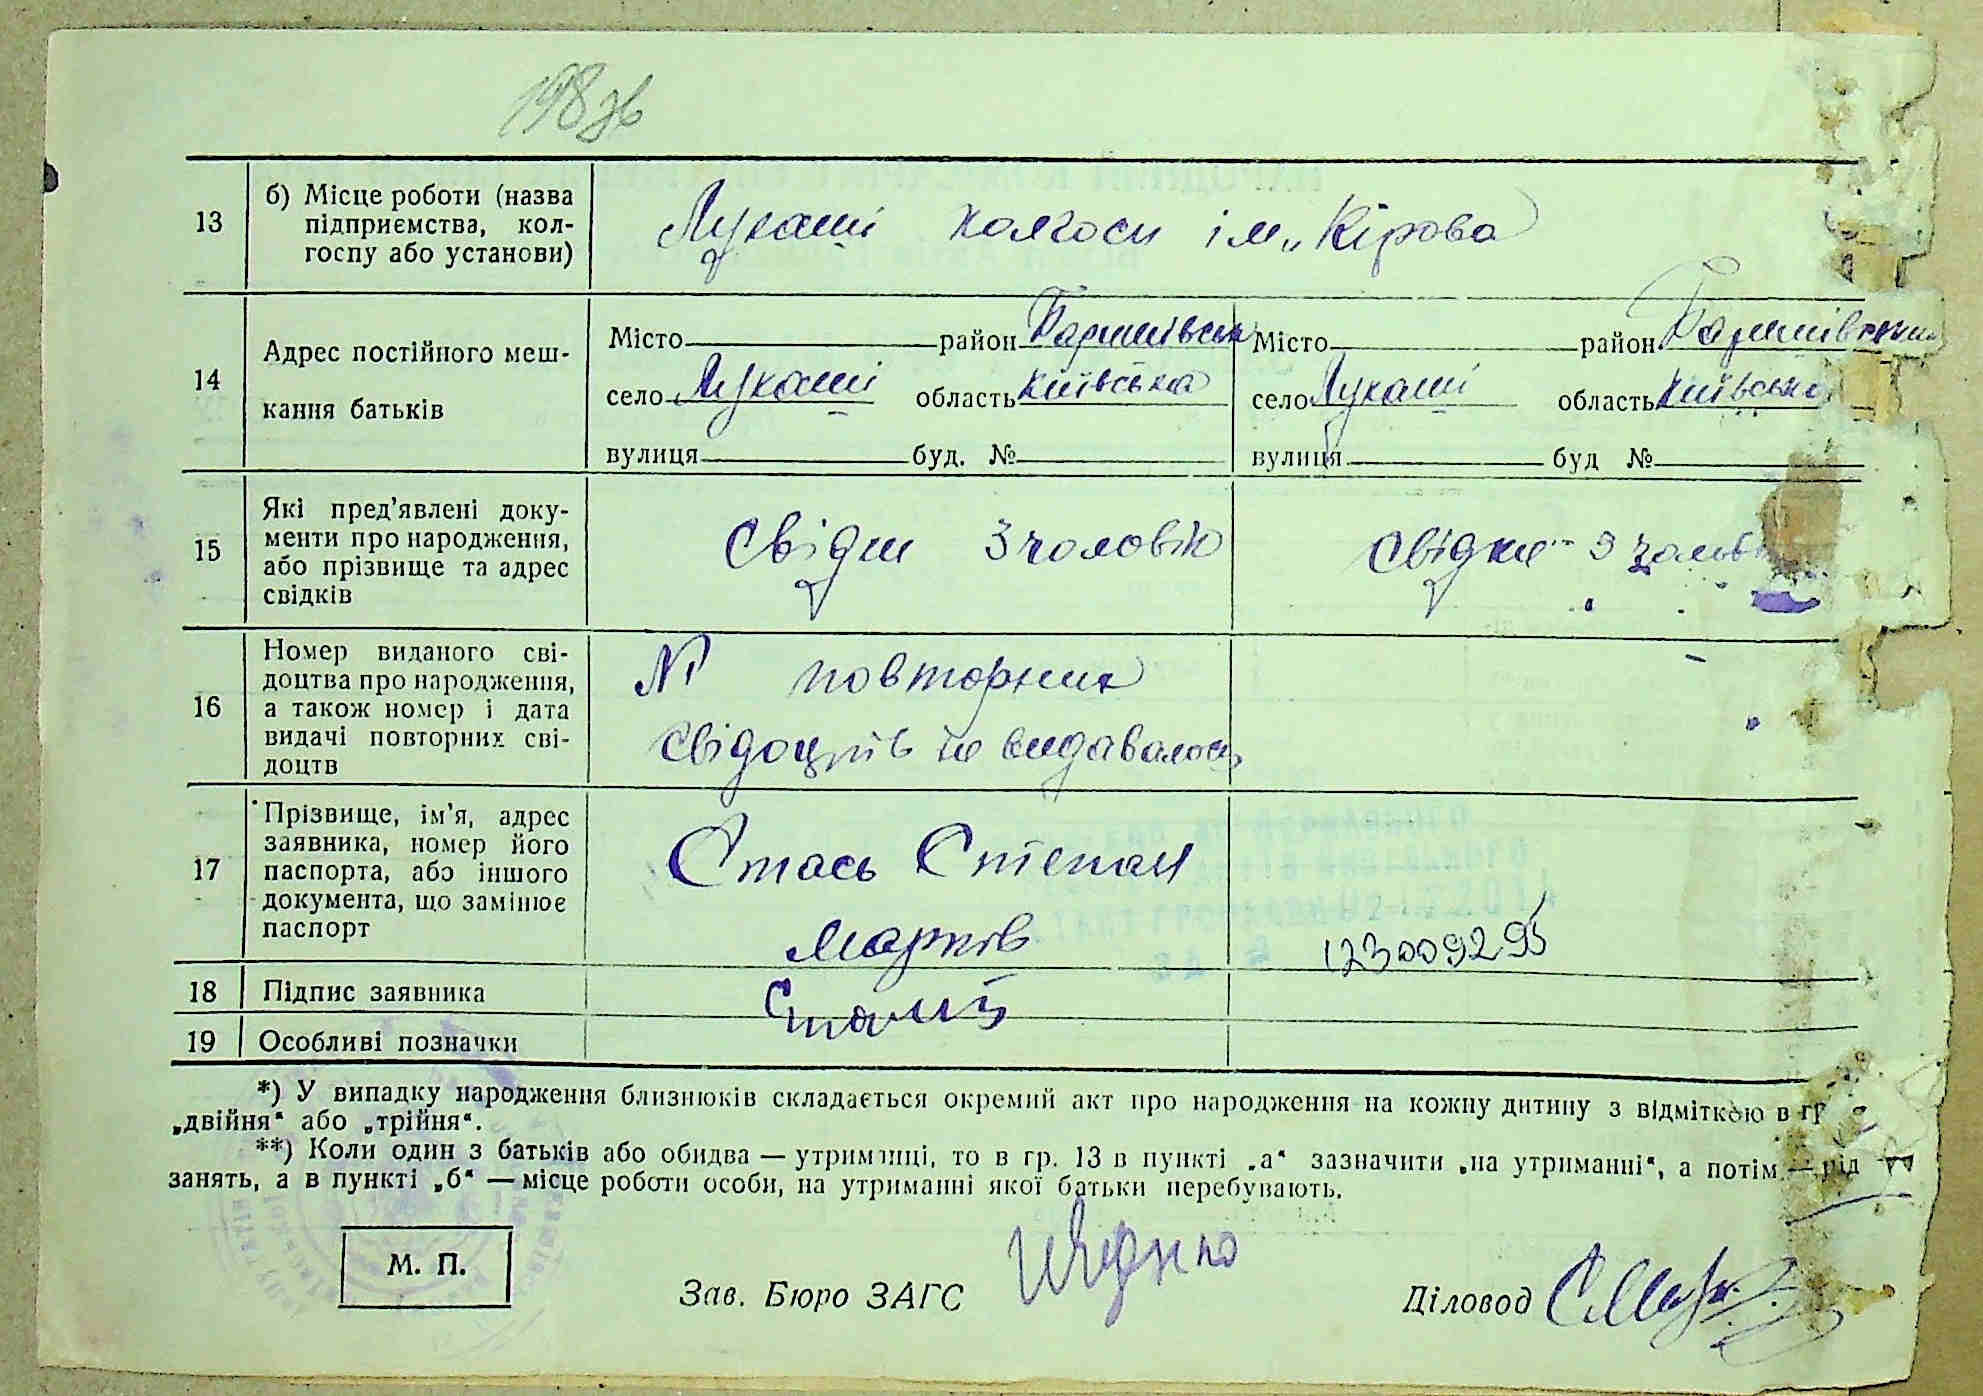 198зв
13
б) Місце роботи (назва
підприємства, кол-
госпу або установи)
Лукаші колгосп ім. Кірова
14
Адрес постійного меш-
кання батьків
Місто район Баришівськ
село Лукаші область Київська
вулиця буд. №
Місто район Баришівський
село Лукаші область Київська
вулиця буд №
15
Які пред'явлені доку-
менти про народження,
або прізвище та адрес
свідків
Свідки 3 чоловік
Свідки - 3 чоловік
16
Номер виданого сві-
доцтва про народження,
а також номер і дата
видачі повторних сві-
доцтв
№ повторних
свідоцтв не видавалось
17
Прізвище, ім'я, адрес
заявника, номер його
паспорта, або іншого
документа, що замінює
паспорт
Стась Степан
Марків
123009295
18
Підпис заявника
19
Особливі позначки
*) У випадку народження близнюків складається окремий акт про народження на кожну дитину з відміткою в гр
„двійня“ або „трійня“.
**) Коли один з батьків або обидва — утриманці, то в гр. 13 в пункті „а“ зазначити „на утриманні“, а потім — рід
занять, а в пункті „б“ — місце роботи особи, на утриманні якої батьки перебувають.
М. П.
Зав. Бюро ЗАГС
Діловод